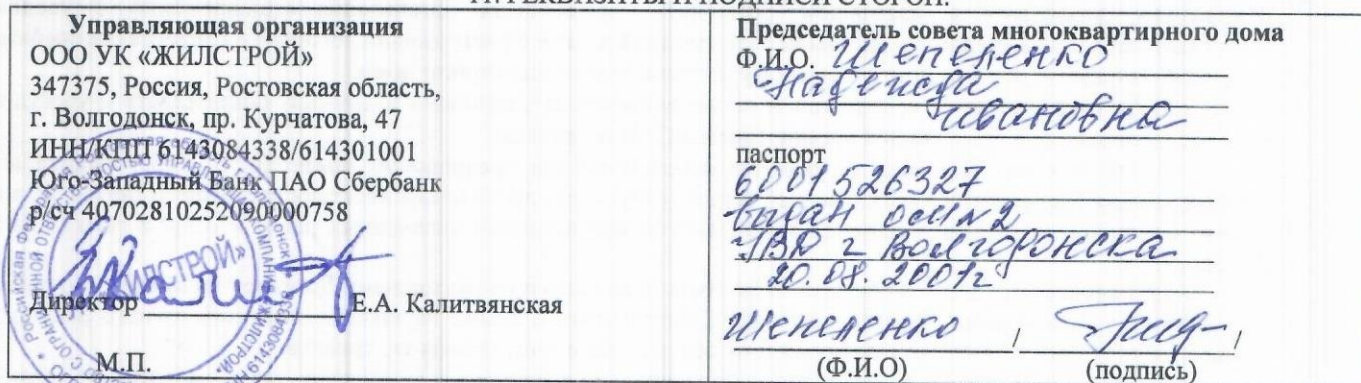 11. РЕКВИЗИТЫ И ПОДПИСИ СТОРОН.
Управляющая организация
ООО УК «ЖИЛСТРОЙ»
347375, Россия, Ростовская область,
г. Волгодонск, пр. Курчатова, 47
ИНН/КПП 6143084338/614301001
Юго-Западный Банк ПАО Сбербанк
р/сч 40702810252090000758
«ЖИЛСТРОЙ»
Директор Е.А. Калитвянская
М.П.
Председатель совета многоквартирного дома
Ф.И.О. Шепеленко
Надежда
Ивановна
паспорт
6001526327
выдан ОМ №2
УВД г Волгодонска
20.08.2001г
Шепеленко / /
(Ф.И.О) (подпись)